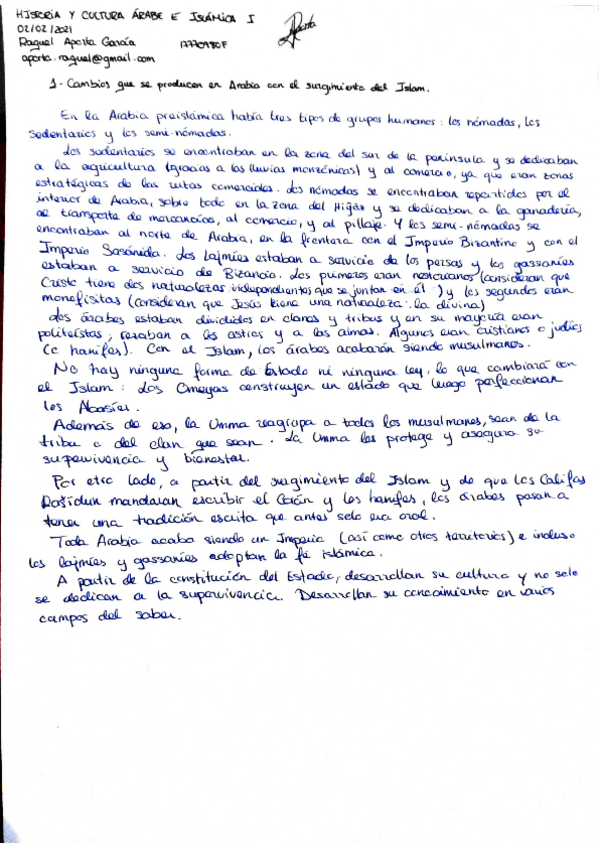 HISTORIA Y CULTURA ÁRABE E ISLÁMICA I
02/02/2021
Raquel Aporta García
aporta.raquel@gmail.com
1- Cambios que se producen en Arabia con el surgimiento del Islam.
En la Arabia preislámica había tres tipos de grupos humanos: los nómadas, los
sedentarios y los semi-nómadas.
Los sedentarios se encontraban en la zona del sur de la península y se dedicaban
a la agricultura (gracias a las lluvias monzónicas) y al comercio, ya que eran zonas
estratégicas de las rutas comerciales. Los nómadas se encontraban repartidos por el
interior de Arabia, sobre todo en la zona del Hijaz y se dedicaban a la ganadería,
al transporte de mercancías, al comercio, y al pillaje. Y los semi-nómadas se
encontraban al norte de Arabia, en la frontera con el Imperio Bizantino y con el
Imperio Sasánida. Los lajmíes estaban a servicio de los persas y los gassaníes
estaban a servicio de Bizancio. Los primeros eran nestorianos (consideran que
Cristo tiene dos naturalezas independientes que se juntan en él) y los segundos eran
monofisitas (consideran que Jesús tiene una naturaleza: la divina)
Los árabes estaban divididos en clanes y tribus y en su mayoría eran
politeístas, rezaban a los astros y a las almas. Algunos eran cristianos o judíos
(o hanifes). Con el Islam, los árabes acabarán siendo musulmanes.
No hay ninguna forma de Estado ni ninguna ley, lo que cambiará con
el Islam: Los Omeyas construyen un estado que luego perfeccionan
los Abasíes.
Además de eso, la Umma reagrupa a todos los musulmanes, sean de la
tribu o del clan que sean. La Umma les protege y asegura su
supervivencia y bienestar.
Por otro lado, a partir del surgimiento del Islam y de que los Califas
Rasidun mandaran escribir el Corán y los hanifes, los árabes pasan a
tener una tradición escrita que antes solo era oral.
Toda Arabia acaba siendo un Imperio (así como otros territorios) e incluso
los lajmíes y gassaníes adoptan la fe islámica.
A partir de la constitución del Estado, desarrollan su cultura y no solo
se dedican a la supervivencia. Desarrollan su conocimiento en varios
campos del saber.